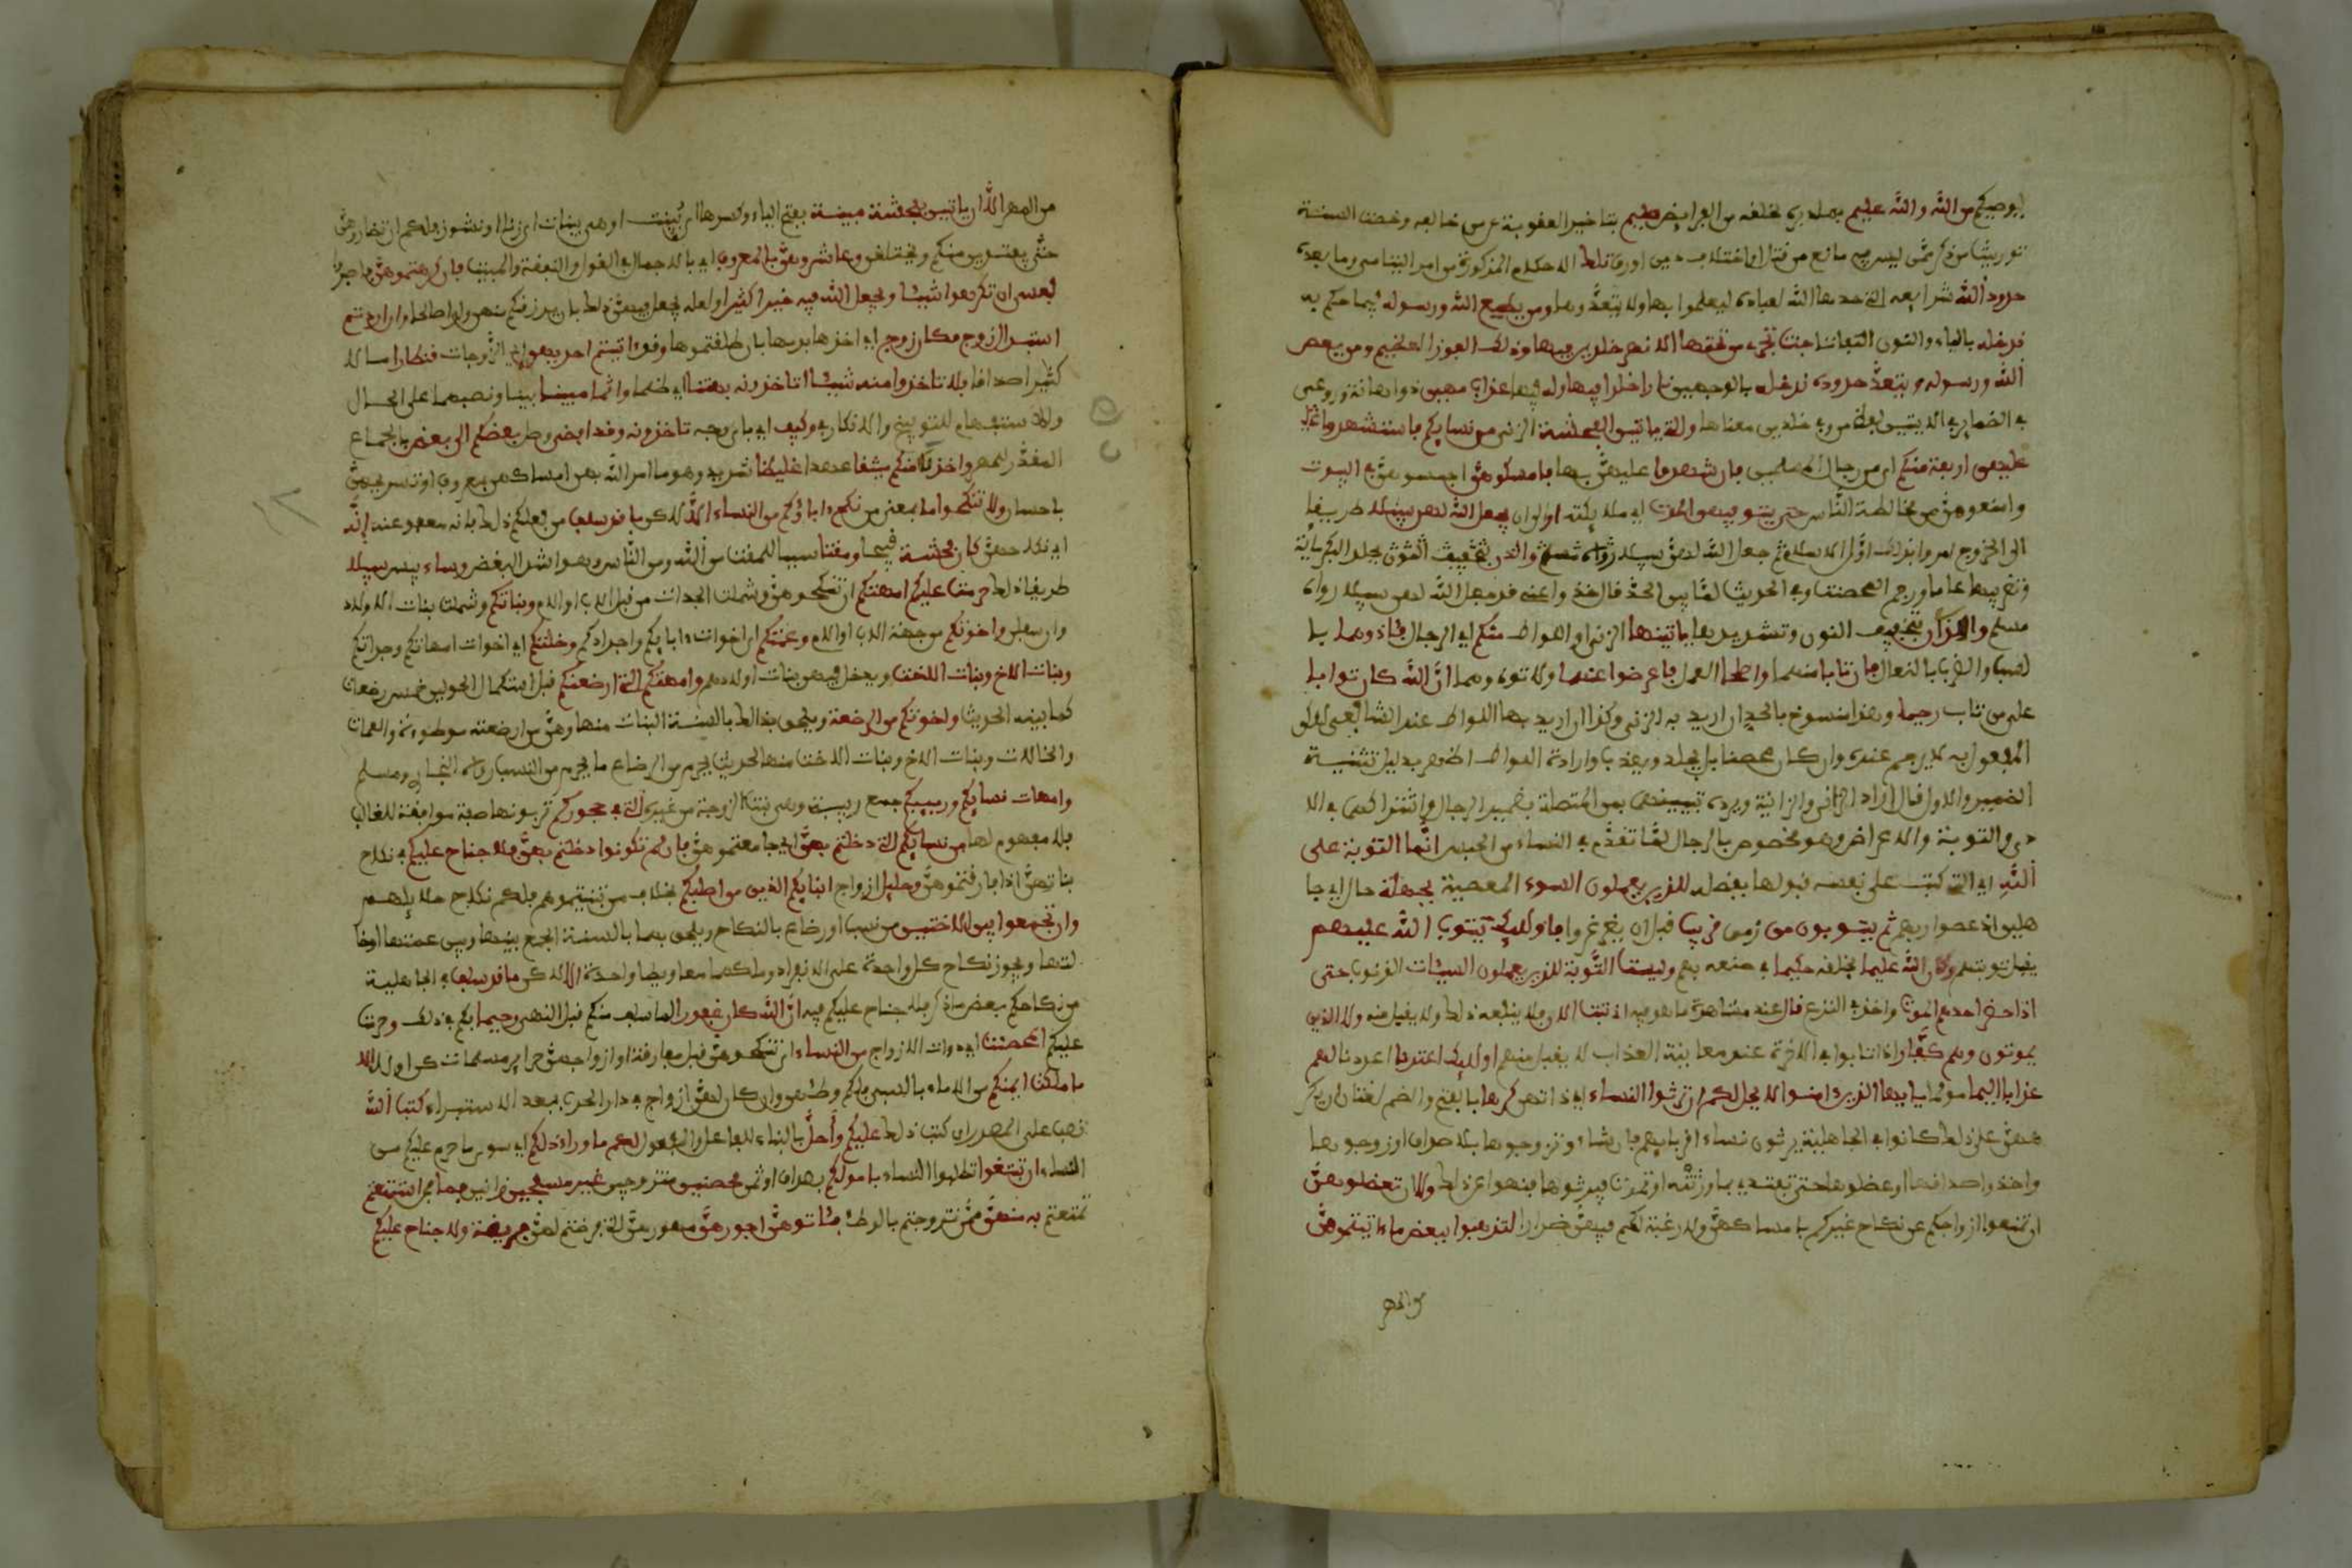 يوصيكم من الله والله عليم بما دبره لخلقه من الفرائض حليم بتاخير العقوبة عن من خالفه وخصت السنة
توريث من ذكر بمن ليس فيه مانع من قتل او اختلاف دين او رق تلك الاحكام المذكورة من امر اليتامى وما بعده
حدود الله شرايعه التي حدها الله لعباده ليعملوا بها ولا يتعدوها ومن يطع الله ورسوله فيما حكم به
ندخله بالياء والنون التفاتا جنت تجري من تحتها الانهر خلدين فيها وذلك الفوز العظيم ومن يعص
الله ورسوله ويتعد حدوده ندخله بالوجهين نارا خلدا فيها وله فيها عذاب مهين ذو اهانة وروعي
في الضمائر في الايتين لفظ من وفي خلدين معناها والتي ياتين الفحشة الزنى من نسايكم فاستشهدوا
عليهن اربعة منكم اي من رجال المسلمين فان شهدوا عليهن بها فامسكوهن احبسوهن في البيوت
وامنعوهن من مخالطة الناس حتى يتوفيهن الموت اي ملايكته او الى ان يجعل الله لهن سبيلا طريقا
الى الخروج امروا بذلك اول الاسلام ثم جعل الله لهن سبيلا بجلد البكر ماية
وتغريبها عاما ورجم المحصنة وفي الحديث لما بين الحد قال خذوا عني قد جعل الله لهن سبيلا رواه
مسلم والذان بتخفيف النون وتشديدها ياتينها الزنى او اللواط منكم اي الرجال فئاذوهما بال
سب والضرب بالنعال فان تابا منهما واصلحا العمل فاعرضوا عنهما ولا توذوهما ان الله كان توابا
على من تاب رحيما وهذا منسوخ بالحد ان اريد به الزنى وكذا ان اريد بها اللواط عند الشافعي لكن
المفعول به لا يرجم عنده وان كان محصنا بل يجلد ويغرب وارادة اللواط اظهر بدليل تثنية
الضمير والاول قال اراد الزاني والزانية ويرده تبيينهما بمن المتصلة بضمير الرجال واشتراكهما في الا
ذى والتوبة والاعراض وهو مخصوص بالرجال لما تقدم في النساء من الحبس انما التوبة على
الله اي التي كتب على نفسه قبولها بفضله للذين يعملون السوء المعصية بجهلة حال اي جا
هلين اذ عصوا ربهم ثم يتوبون من زمن قريب قبل ان يغرغروا فاولئك يتوب الله عليهم
يقبل توبتهم وكان الله عليما بخلقه حكيما في صنعه بهم وليست التوبة للذين يعملون السيئات الذنوب حتى
اذا حضر احدهم الموت واخذ في النزع قال عند مشاهدة ما هو فيه اني تبت الان فلا ينفعه ذلك ولا يقبل منه ولا الذين
يموتون وهم كفار اذا تابوا في الاخرة عند معاينة العذاب لا يقبل منهم اولئك اعتدنا اعددنا لهم
عذابا اليما مولما يايها الذين امنوا لا يحل لكم ان ترثوا النساء اي ذاتهن كرها بالفتح والضم لغتان اي مكر
هيهن على ذلك كانوا في الجاهلية يرثون نساء اقربايهم فان شاءوا تزوجوها بلا صداق او زوجوها
واخذوا صداقها او عضلوها حتى تفتدي بما ورثته او تموت فيرثوها فنهوا عن ذلك ولا ان تعضلوهن
اي تمنعوا ازواجكم عن نكاح غيركم بامساكهن ولا رغبة لكم فيهن ضرارا لتذهبوا ببعض ما ءاتيتموهن
من المهر
من المهر الا ان ياتين بفحشة مبينة بفتح الياء وكسرها اي بينت او هي بينة اي زنا او نشوز فلكم ان تضاروهن
حتى يفتدين منكم ويختلعن وعاشروهن بالمعروف اي بالاجمال في القول والنفقة والمبيت فان كرهتموهن فاصبروا
فعسى ان تكرهوا شيئا ويجعل الله فيه خيرا كثيرا ولعله يجعل فيهن ذلك بان يرزقكم منهن ولدا صالحا وان اردتم
استبدال زوج مكان زوج اي اخذها بدلها بان طلقتموها وقد ءاتيتم احديهن اي الزوجات قنطارا مالا
كثيرا صداقا فلا تاخذوا منه شيئا اتاخذونه بهتنا اي ظلما واثما مبينا بينا ونصبهما على الحال
والاستفهام للتوبيخ والانكار في وكيف اي باي وجه تاخذونه وقد افضى وصل بعضكم الى بعض بالجماع
المقرر للمهر واخذن منكم ميثقا عهدا غليظا شديدا وهو ما امر الله به من امساكهن بمعروف او تسريحهن
باحسان ولا تنكحوا ما بمعنى من نكح ءاباؤكم من النساء الا لكن ما قد سلف من فعلكم ذلك فانه معفو عنه انه
اي نكاحهن كان فحشة قبيحا ومقتا سببا للمقت من الله ومن الناس وهو اشد البغض وساء بيس سبيلا
طريقا ذلك حرمت عليكم امهتكم ان تنكحوهن وشملت الجدات من قبل الاب او الام وبناتكم وشملت بنات الاولاد
وان سفلن واخوتكم من جهة الاب او الام وعمتكم اي اخوات ءابايكم واجدادكم وخلتكم اي اخوات امهاتكم وجداتكم
وبنات الاخ وبنات الاخت ويدخل فيهن بنات اولادهم وامهتكم التي ارضعنكم قبل استكمال الحولين خمس رضعات
كما بينه الحديث واخوتكم من الرضعة ويلحق بذالك بالسنة البنات منها وهن من ارضعته موطوءته والعمات
والخالات وبنات الاخ وبنات الاخت منها لحديث يحرم من الرضاع ما يحرم من النسب رواه البخاري ومسلم
وامهات نسايكم وربيبكم جمع ربيبة وهي بنت الزوجة من غيره التي في حجوركم تربونها صفة موافقة للغالب
فلا مفهوم لها من نسايكم التي دخلتم بهن اي جامعتموهن فان لم تكونوا دخلتم بهن فلا جناح عليكم في نكاح
بناتهن اذا فارقتموهن وحليل ازواج ابنايكم الذين من اصلبكم بخلاف من تبنيتموهم فلكم نكاح حلايلهم
وان تجمعوا بين الاختين من نسب او رضاع بالنكاح ويلحق بهما بالسنة الجمع بينها وبين عمتها او خا
لتها ويجوز نكاح كل واحدة على الانفراد وملكهما معا ويطا واحدة الا لكن ما قد سلف في الجاهلية
من نكاحكم بعض ما ذكر فلا جناح عليكم فيه ان الله كان غفورا لما سلف منكم قبل النهي رحيما بكم في ذلك وحرمت
عليكم المحصنت اي ذوات الازواج من النساء ان تنكحوهن قبل مفارقة ازواجهن حراير مسلمات كن او لا الا
ما ملكت ايمنكم من الاماء بالسبي فلكم وطئهن وان كان لهن ازواج في دار الحرب بعد الاستبراء كتب الله
نصب على المصدر اي كتب ذلك عليكم وأحل بالبناء للفاعل والمفعول لكم ما وراء ذلكم اي سوى ما حرم عليكم من
النساء ان تبتغوا تطلبوا النساء باموالكم بصداق او ثمن محصنين متزوجين غير مسفحين زانين فما فمن استمتعتم
تمتعتم به منهن ممن تزوجتم بالوطئ فئاتوهن اجورهن مهورهن التي فرضتم لهن فريضة ولا جناح عليكم